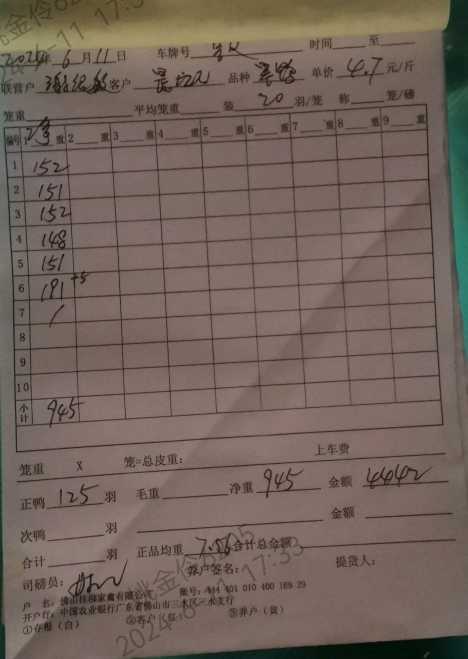 2024年6月11日 车牌号 时间 至
联营户 客户 品种 单价 4.7 元/斤
笼重 平均笼重 装 20 羽/笼 称 笼/磅
编号 1 净重 2 重 3 重 4 重 5 重 6 重 7 重 8 重 9 重
1 152
2 151
3 152
4 148
5 151
6 191 +5
7 /
8
9
10
小计 945
笼重 X 笼=总皮重: 上车费
正鸭 125 羽 毛重 净重 945 金额 4442
次鸭 羽 金额
合计 羽 正品均重 7.56 合计总金额
司磅员: 养户签名: 提货人:
户 名: 佛山桂柳家禽有限公司 账号: 444 401 010 400 169 29
开户行: 中国农业银行广东省佛山市三水区三水支行
①存根(白) ②客户(红) ③养户(黄)
2024-6-11 17:33